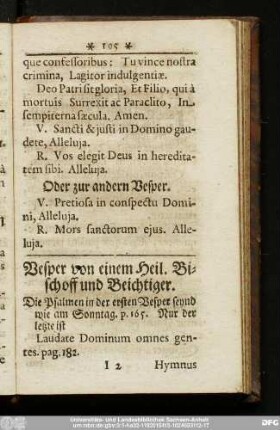 * 105 *
que confessoribus: Tu vince nostra
crimina, Lagitor indulgentiæ.
Deo Patri sit gloria, Et Filio, qui à
mortuis Surrexit ac Paraclito, In
sempiterna sæcula. Amen.
V. Sancti & justi in Domino gau-
dete, Alleluja.
R. Vos elegit Deus in heredita-
tem sibi. Alleluja.
Oder zur andern Vesper.
V. Pretiosa in conspectu Domi-
ni, Alleluja.
R. Mors sanctorum ejus. Alle-
luja.
Vesper von einem Heil. Bi-
schoff und Beichtiger.
Die Psalmen in der ersten Vesper seynd
wie am Sonntag. p. 165. Nur der
letzte ist
Laudate Dominum omnes gen-
tes. pag. 182.
I 2 Hymnus
Universitäts- und Landesbibliothek Sachsen-Anhalt